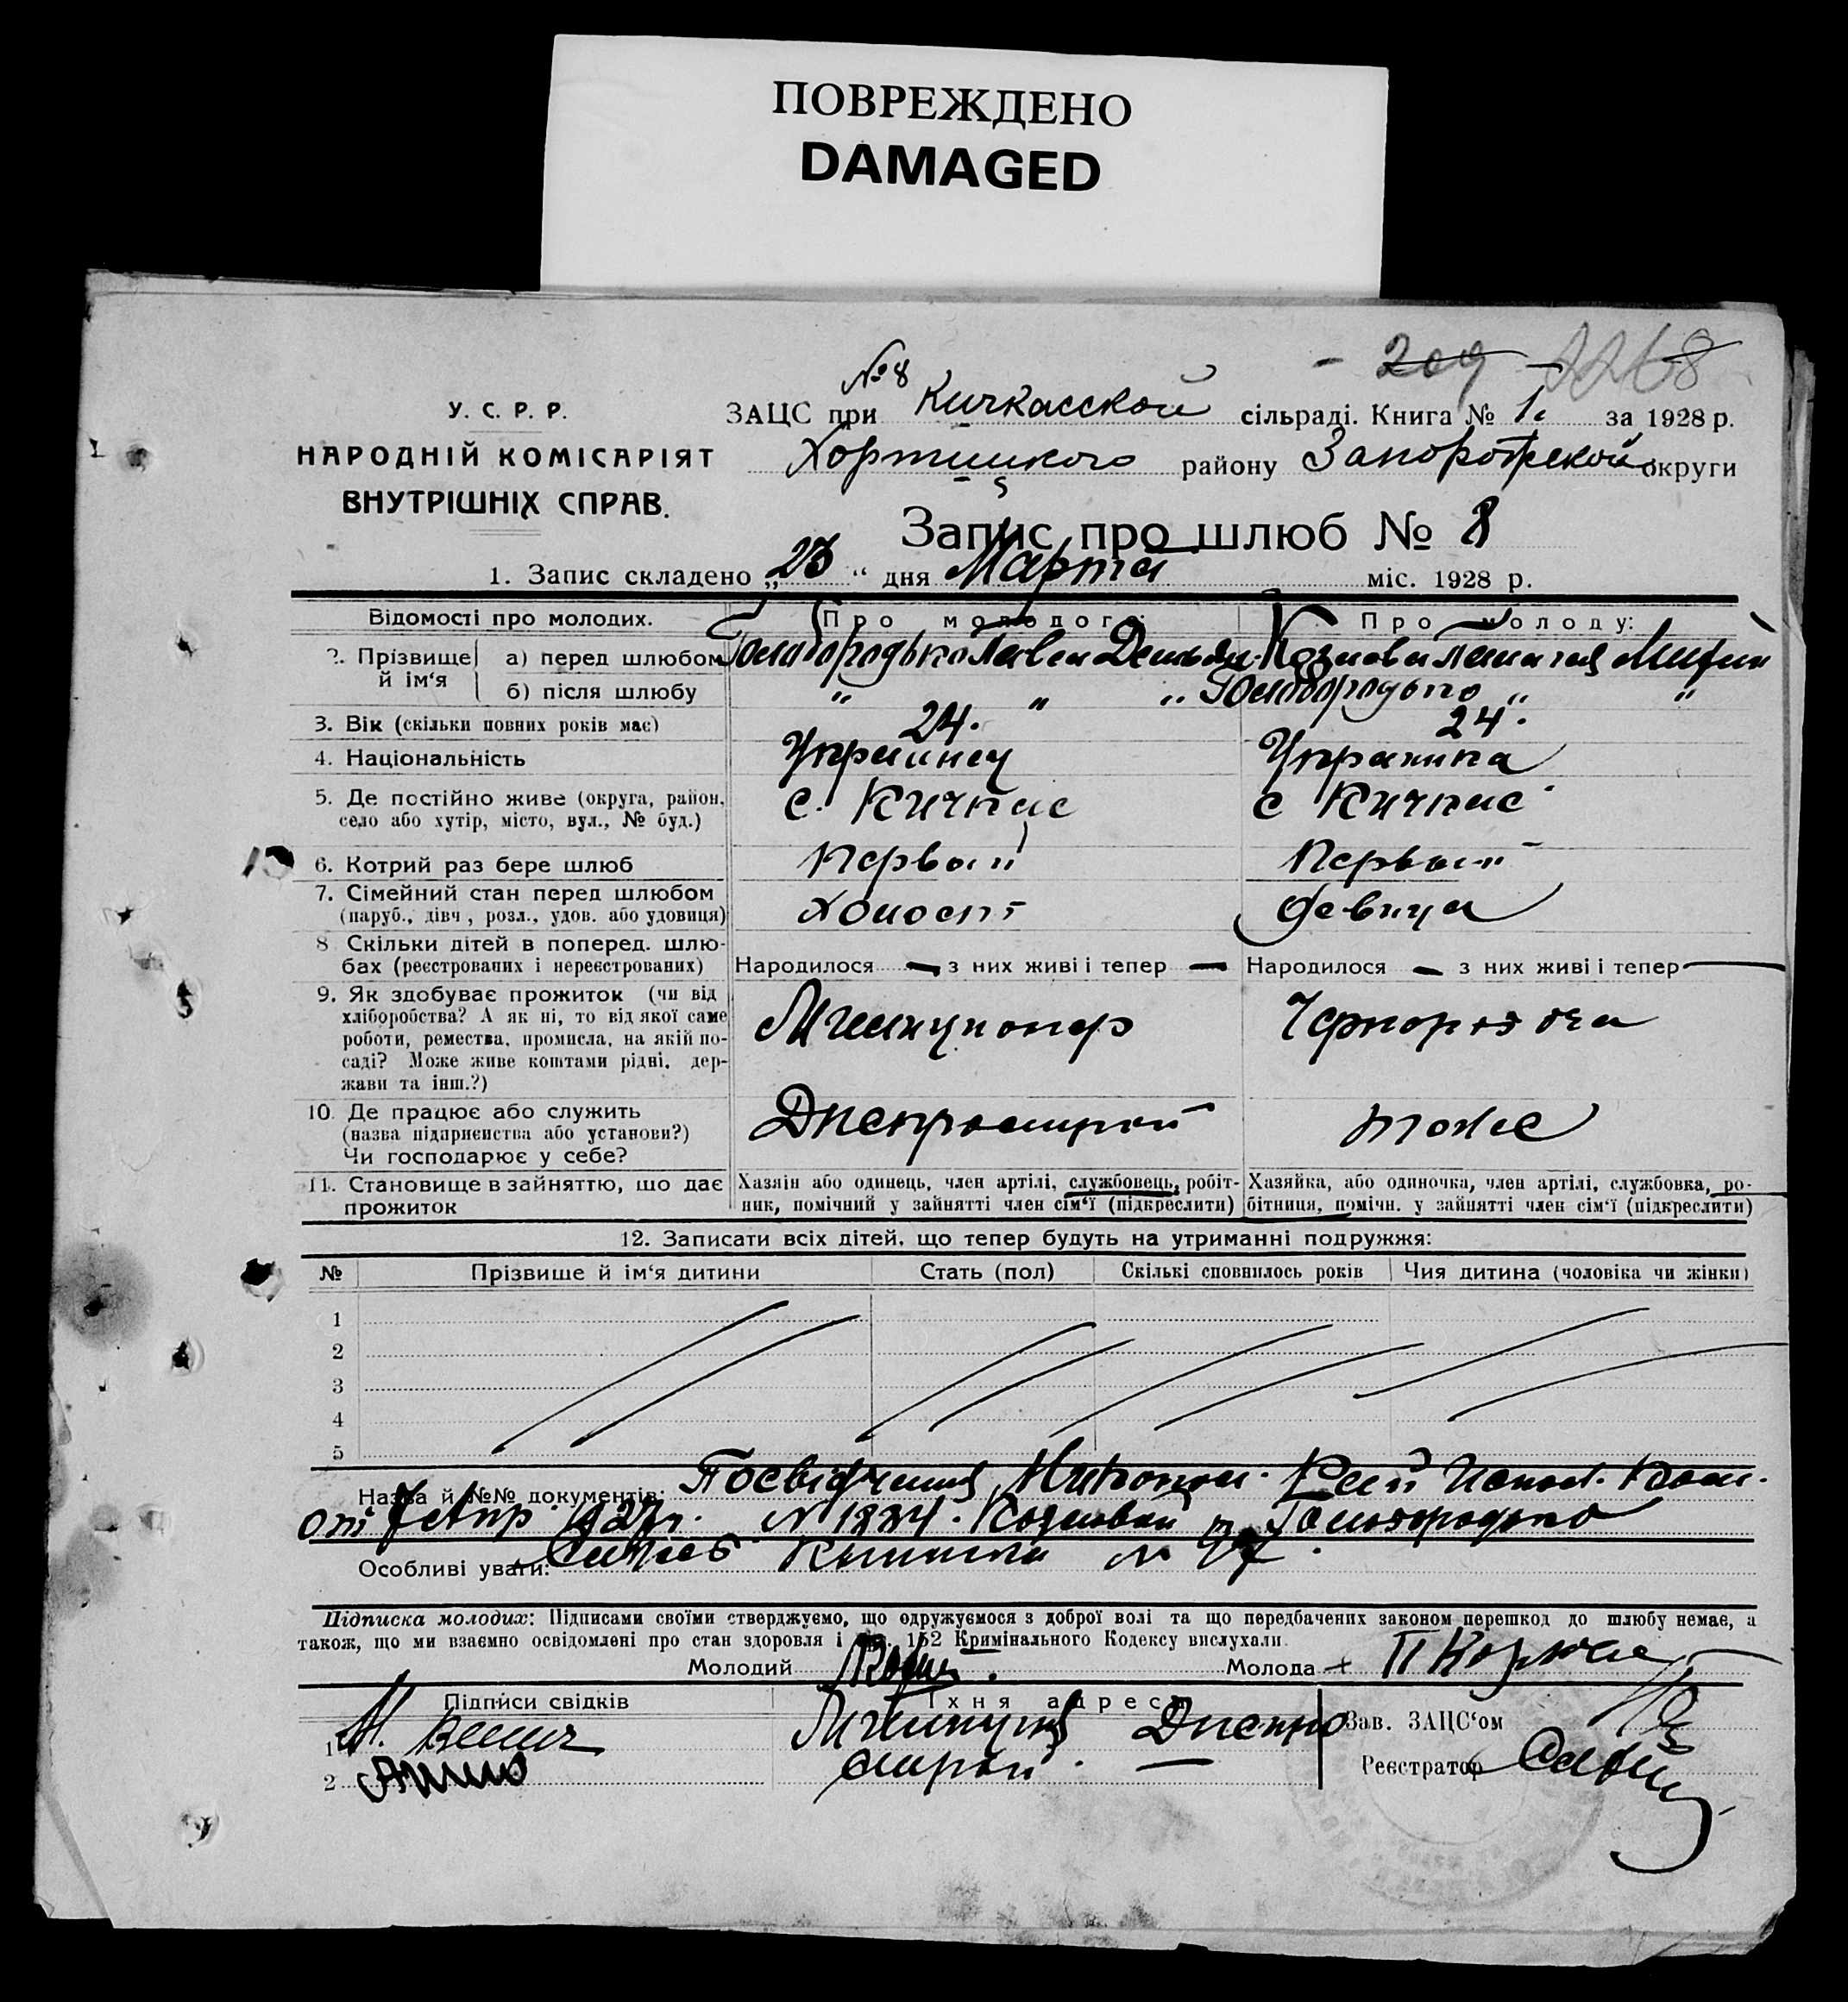 ПОВРЕЖДЕНО
DAMAGED
- 209 -
№ 8
У. С. Р. Р.
НАРОДНІЙ КОМІСАРІЯТ
ВНУТРІШНІХ СПРАВ.
ЗАЦС при Кичкасской сільраді. Книга № 1. за 1928 р.
Хортицкого району Запорожской округи
Запис про шлюб № 8
1. Запис складено „23“ дня Марта міс. 1928 р.
Відомості про молодих. Про молодого: Про молоду:
2. Прізвище й ім‘я
а) перед шлюбом Голобородько Павел Демьян. Козлова
б) після шлюбу " " " Голобородько " "
3. Вік (скільки повних років має) 24. 24.
4. Національність Украинец Украинка
5. Де постійно живе (округа, район, с. Кичкас с Кичкас
село або хутір, місто, вул., № буд.)
6. Котрий раз бере шлюб Первый Первый
7. Сімейний стан перед шлюбом Холост девица
(паруб., дівч., розл., удов. або удовиця)
8 Скільки дітей в поперед. шлю-
бах (реєстрованих і нереєстрованих) Народилося — з них живі і тепер — Народилося — з них живі і тепер —
9. Як здобуває прожиток (чи від
хліборобства? А як ні, то від якої саме Милиционер Чернорабоча
роботи, ремества, промисла, на якій по-
саді? Може живе коштами рідні, дер-
жави та інш.?)
10. Де працює або служить Днепрострой тоже
(назва підприємства або установи?)
Чи господарює у себе?
11. Становище в зайняттю, що дає Хазяїн або одинець, член артілі, службовець, робіт- Хазяйка, або одиночка, член артілі, службовка, ро-
прожиток ник, помічний у зайнятті член сім‘ї (підкреслити) бітниця, помічн. у зайнятті член сім‘ї (підкреслити)
12. Записати всіх дітей, що тепер будуть на утриманні подружжя:
№ Прізвище й ім‘я дитини Стать (пол) Скількі сповнилось років Чия дитина (чоловіка чи жінки)
1
2
3
4
5
Назва й №№ документів: Посвідчення Никопол. Рай Исполком.
от 7 Апр 1927 г. № 1224. Козловой Голобородько
Особливі уваги: № 97.
Підписка молодих: Підписами своїми стверджуємо, що одружуємося з доброї волі та що передбачених законом перешкод до шлюбу немає, а
також, що ми взаємно освідомлені про стан здоровля і 152 Кримінального Кодексу вислухали.
Молодий Молода + П Козлова
Підписи свідків Їхня адреса
1 Милиция Днепро Зав. ЗАЦС‘ом
2 строй. — Реєстратор